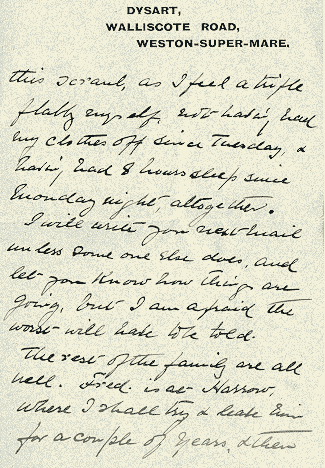 DYSART,
WALLISCOTE ROAD,
WESTON-SUPER-MARE.
this scrawl, as I feel a trifle
flabby myself, not having had
my clothes off since Tuesday, &
having had 8 hours sleep since
Monday night, altogether.
I will write you next mail
unless some one else does, and
let you know how things are
going, but I am afraid the
worst will have to be told.
The rest of the family are all
well. Fred. is at Harrow,
where I shall try & leave him
for a couple of years, & then